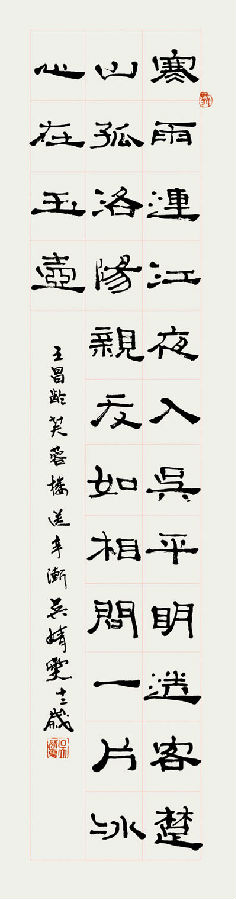 寒雨連江夜入吳平明送客楚
山孤洛陽親友如相問一片冰
心在玉壺
王昌齡芙蓉樓送辛漸 吳婧雯十二歲